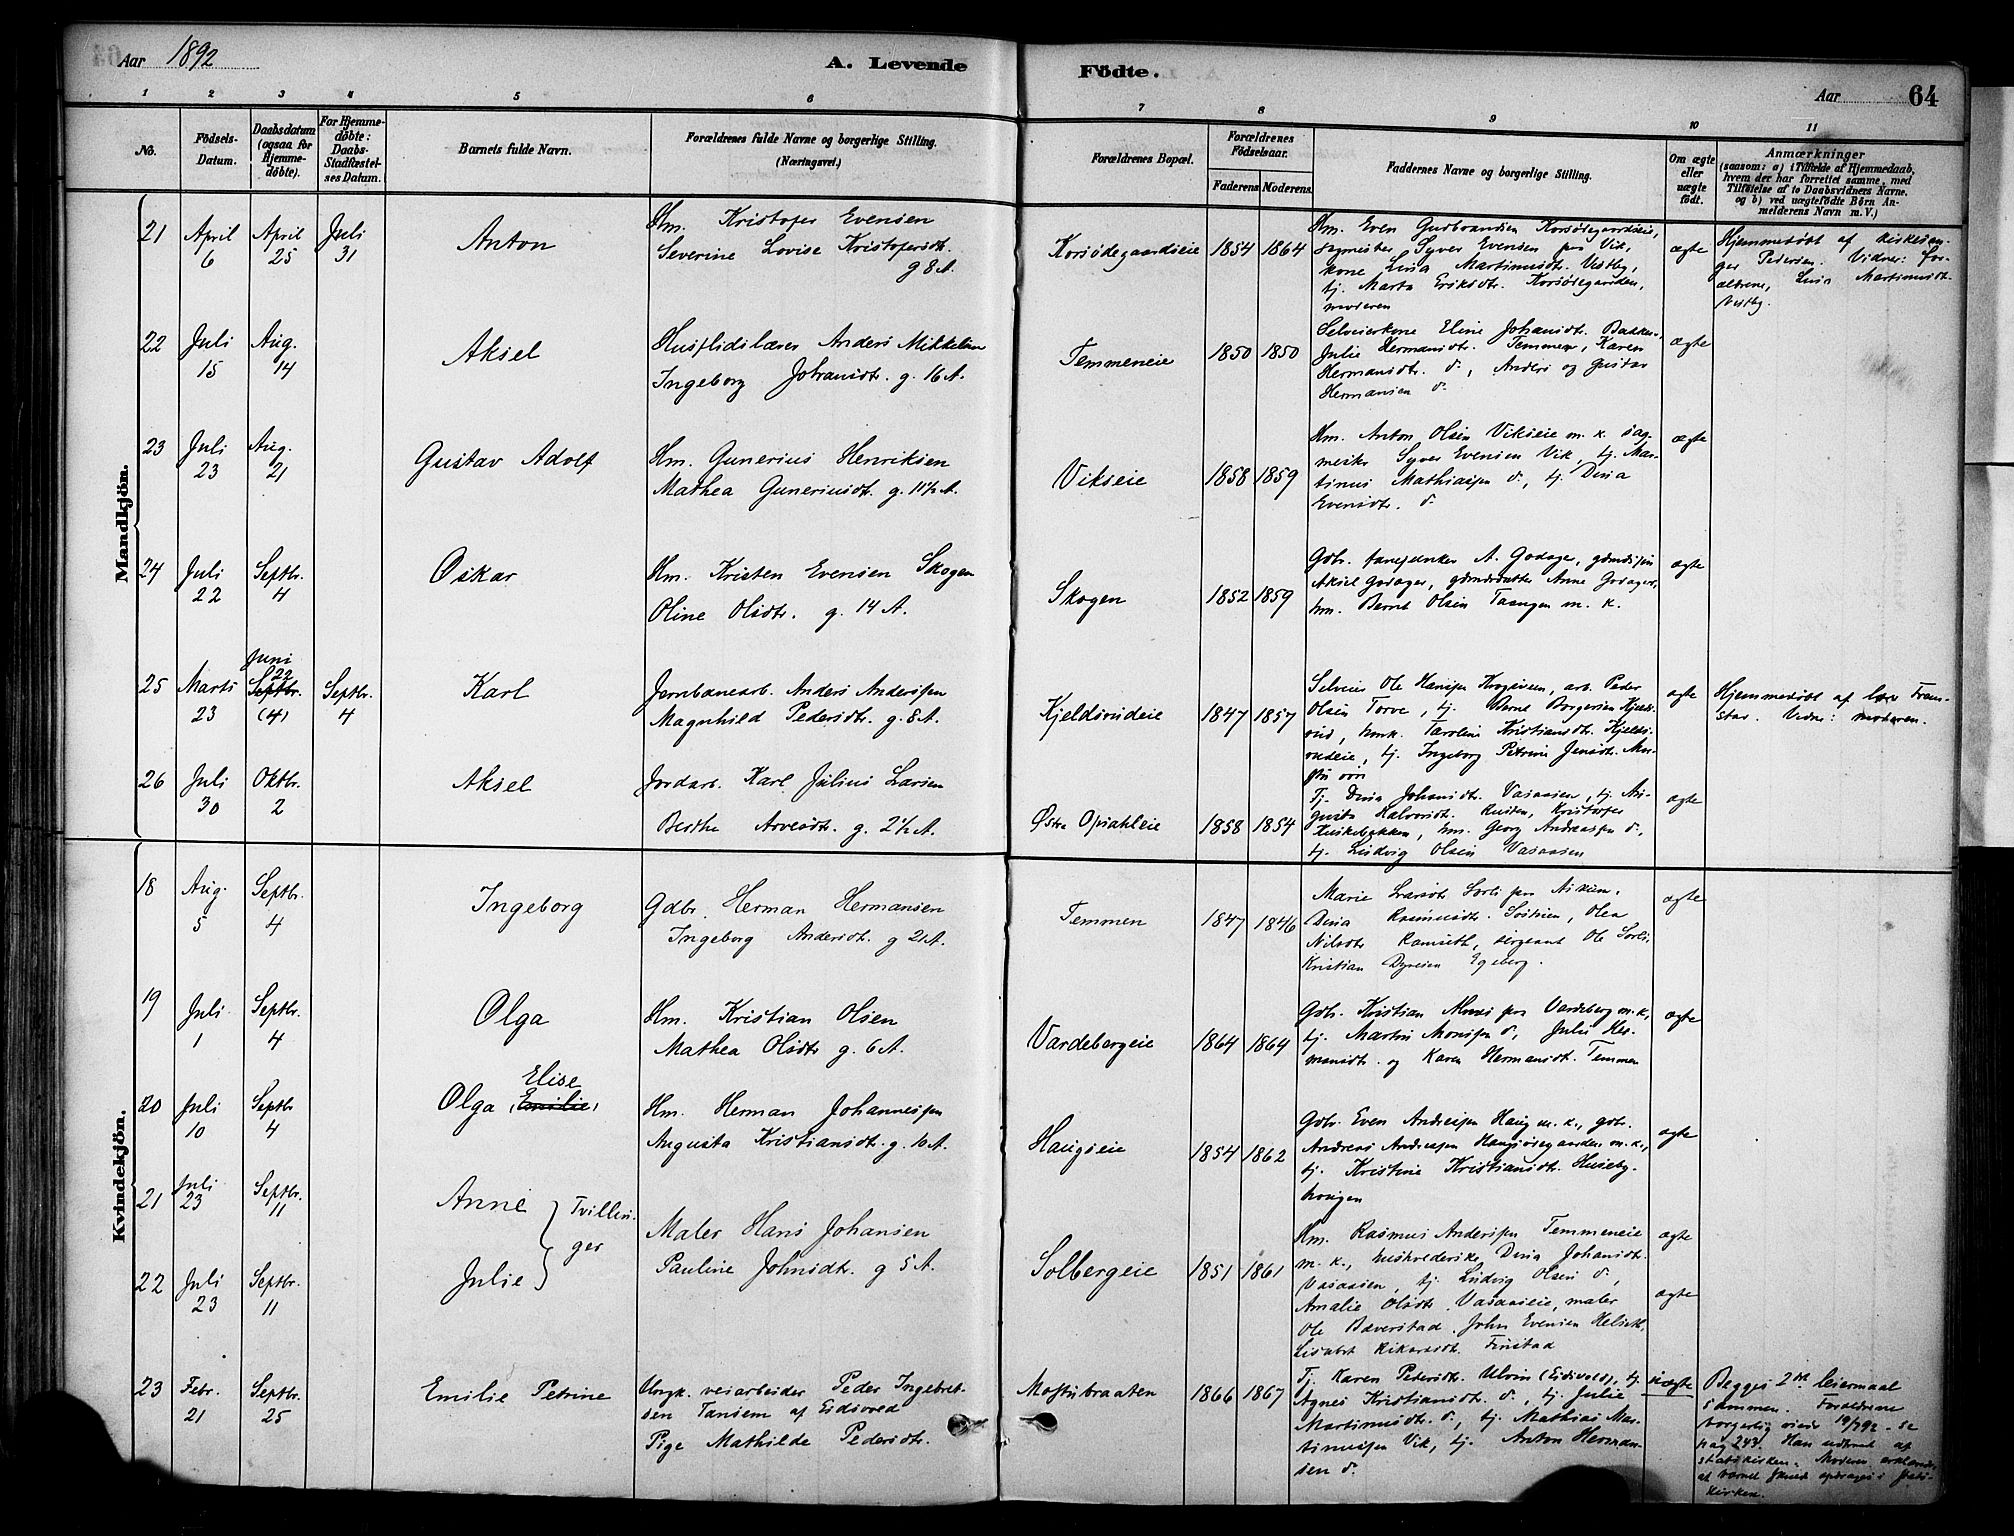 Aar 1892
A. Levende Födte.
Aar 64
1 2 3 4 5 6 7 8 9 10 11
No.
Födsels-Datum.
Daabsdatum (ogsaa for Hjemmedöbte).
For Hjemmedöbte: Daabs-Stadfæstelses Datum.
Barnets fulde Navn.
Forældrenes fulde Navne og borgerlige Stilling.
(Næringsvei.)
Forældrenes Bopæl.
Forældrenes Födselsaar.
Faderens Moderens
Faddernes Navne og borgerlige Stilling.
Om ægte eller uægte födt.
Anmærkninger
(saasom: a) i Tilfælde af Hjemmedaab, hvem der har forrettet samme, med Tilföielse af to Daabsvidners Navne. og b) ved uægtefödte Börn Anmelderens Navn m. V.)
Mandkjön.
21 April 6 April 25 Juli 31 Anton
Hm. Kristofer Evensen
Severine Lovise Kristofersdt.
g 8 A.
Korsødegaardseie 1854 1864
Hm. Even Gudbrandsen Korsødegaardseie,
sagmester Syver Evensen fra Vik,
kone Lina Martinusdt. Vestby,
tj. Marta Eriksdt. Korsødegaarden,
moderen
ægte
Hjemmedøbt af kirkesanger Pedersen. Vidner: forældrene, Lina Martinusdt. Vestby.
22 Juli 15 Aug. 14 Aksel
Husflidslærer Anders Mikkelsen
Ingeborg Johansdt. g. 16 A.
Temmeneie 1850 1850
Selveierkone Eline Johansdt. Bakken,
Julie Hermansdt. Temmen, Karen
Hermansdt. d., Anders og Gustav
Hermansen d.
ægte
23 Juli 23 Aug. 21 Gustav Adolf
Hm. Gunerius Henriksen
Mathea Gunerinsdt. g. 11½ A.
Vikseie 1858 1859
Hm. Anton Olsen Vikseie m. k. sag-
mester Syver Evensen Vik, tj. Mar-
tinus Mathiassen d., tj. Dina
Evensdt. d.
ægte
24 Juli 22 Septbr. 4 Oskar
Hm. Kristen Evensen Skogen
Oline Olsdt. g. 14 A.
Skogen 1852 1859
Gdbr. fanejunker A. Godager, gdmdssøn
Aksel Godager, gdmdsdatter Anne Godager,
hm. Bernt Olsen Taangen m. k.
ægte
25 Marts 23 Juni 22 Septbr. (4) Septbr. 4 Karl
Jernbanearb. Anders Anderssen
Magnhild Pedersdt. g. 8 A.
Kjeldsrudeie 1847 1857
Selveier Ole Hansen Krogsveen, arb. Peder
Olsen Torve, tj. Bernt Borgersen Kjelds-
rud, hmk. Karoline Kristiansdt. Kjelds-
rudeie, tj. Ingeborg Petrine Jensdt.
ægte
Hjemmedøbt af Framstar. Vidne: moderen.
26 Juli 30 Oktbr. 2 Aksel
Jordarb. Karl Julius Larsen
Berthe Arvesdt. g. 2½ A.
Østre Opsahleie 1858 1854
Tj. Dina Johansdt. Vasaasen, tj. Au-
gusta Halvorsdt. Rusten, Kristofer
Kuskebakken, hm. Georg Andreassen d.,
tj. Ludvig Olsen Vasaasen
ægte
Kvindekjön.
18 Aug. 5 Septbr. 4 Ingeborg
Gdbr. Herman Hermansen
Ingeborg Andersdt. g 21 A.
Temmen 1847 1846
Marie Larsdt. Sorli fra
Dina Rasmusdt. Olea
Nilsdt. Ramseth, sergeant Ole Sorli,
Kristian Dyresen Egeberg.
ægte
19 Juli 1 Septbr. 4 Olga
Hm. Kristian Olsen
Mathea Olsdt. g. 6 A.
Vardebergeie 1864 1864
Gdbr. Kristian fra Vardeberg m. k,
tj. Martin Monssen d., Julie Her-
mansdt. og Karen Hermansdt. Temmen
ægte
20 Juli 10 Septbr 4 Olga, Elise Emilie,
Hm. Herman Johannessen
Augusta Kristiansdt. g. 16 A.
Haugseie 1854 1862
Gdbr. Even Andreassen Haug m. k., gdbr.
Andreas Andreassen Haugsødegaarden m. k.,
tj. Kristine Kristiansdt. Huseby-
haugen
ægte
21 Juli 23 Septbr. 11 Anne
Tvillinger
22 Juli 23 Septbr. 11 Julie
Maler Hans Johansen
Pauline Johnsdt. g 5 A.
Solbergeie 1851 1861
Hm. Rasmus Anderssen Temmeneie
m. k., Dina Johansdt.
Vasaasen, tj. Ludvig Olsen d.,
Amalie Olsdt. Vasaaseie, maler
Ole Bæverstad, John Evensen Helseth,
Lisabet Rikardsdt. Finstad
ægte
ægte
23 Febr. 21 Septbr. 25 Emilie Petrine
Ungk. veiarbeider Peder Ingebret-
sen Tansem af Eidsvold
Pige Mathilde Pedersdt.
Moststubraaten 1866 1867
Tj. Karen Pedersdt. Ulvin (Eidsvold), tj.
Agnes Kristiansdt. d., tj. Julie
Martinusdt. d., tj. Mathias Mar-
tinussen Vik, tj. Anton Herman-
sen d.
uægte
Begges 2det leiermaal
sammen. Forældrene
borgerlig viede 19/7 92 - se
pag 243. Han udtraat af
statskirken. Moderen erklærede,
at barnet skulde opdrages i stats-
kirken.